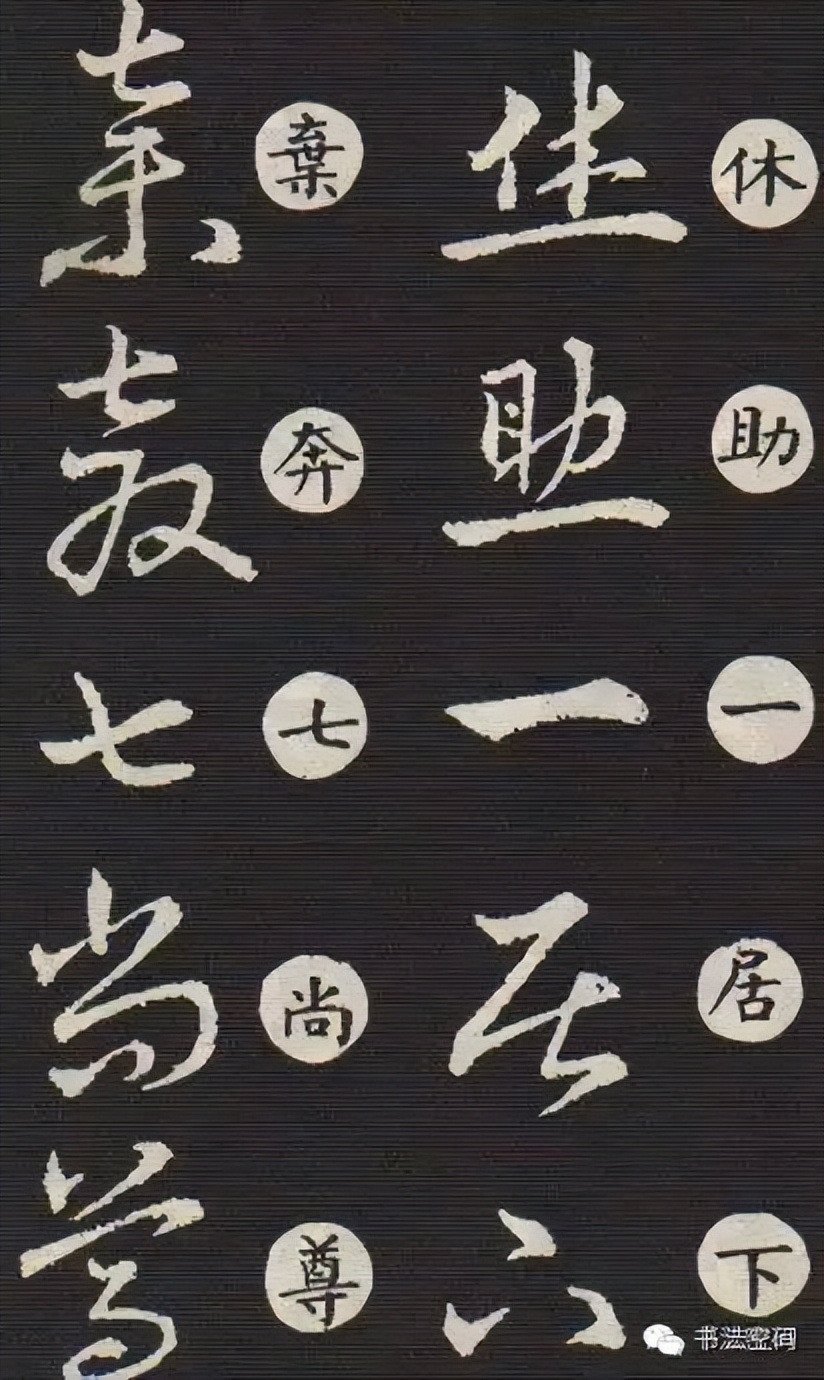 休
助
一
居
下
棄
奔
七
尚
尊
书法密码